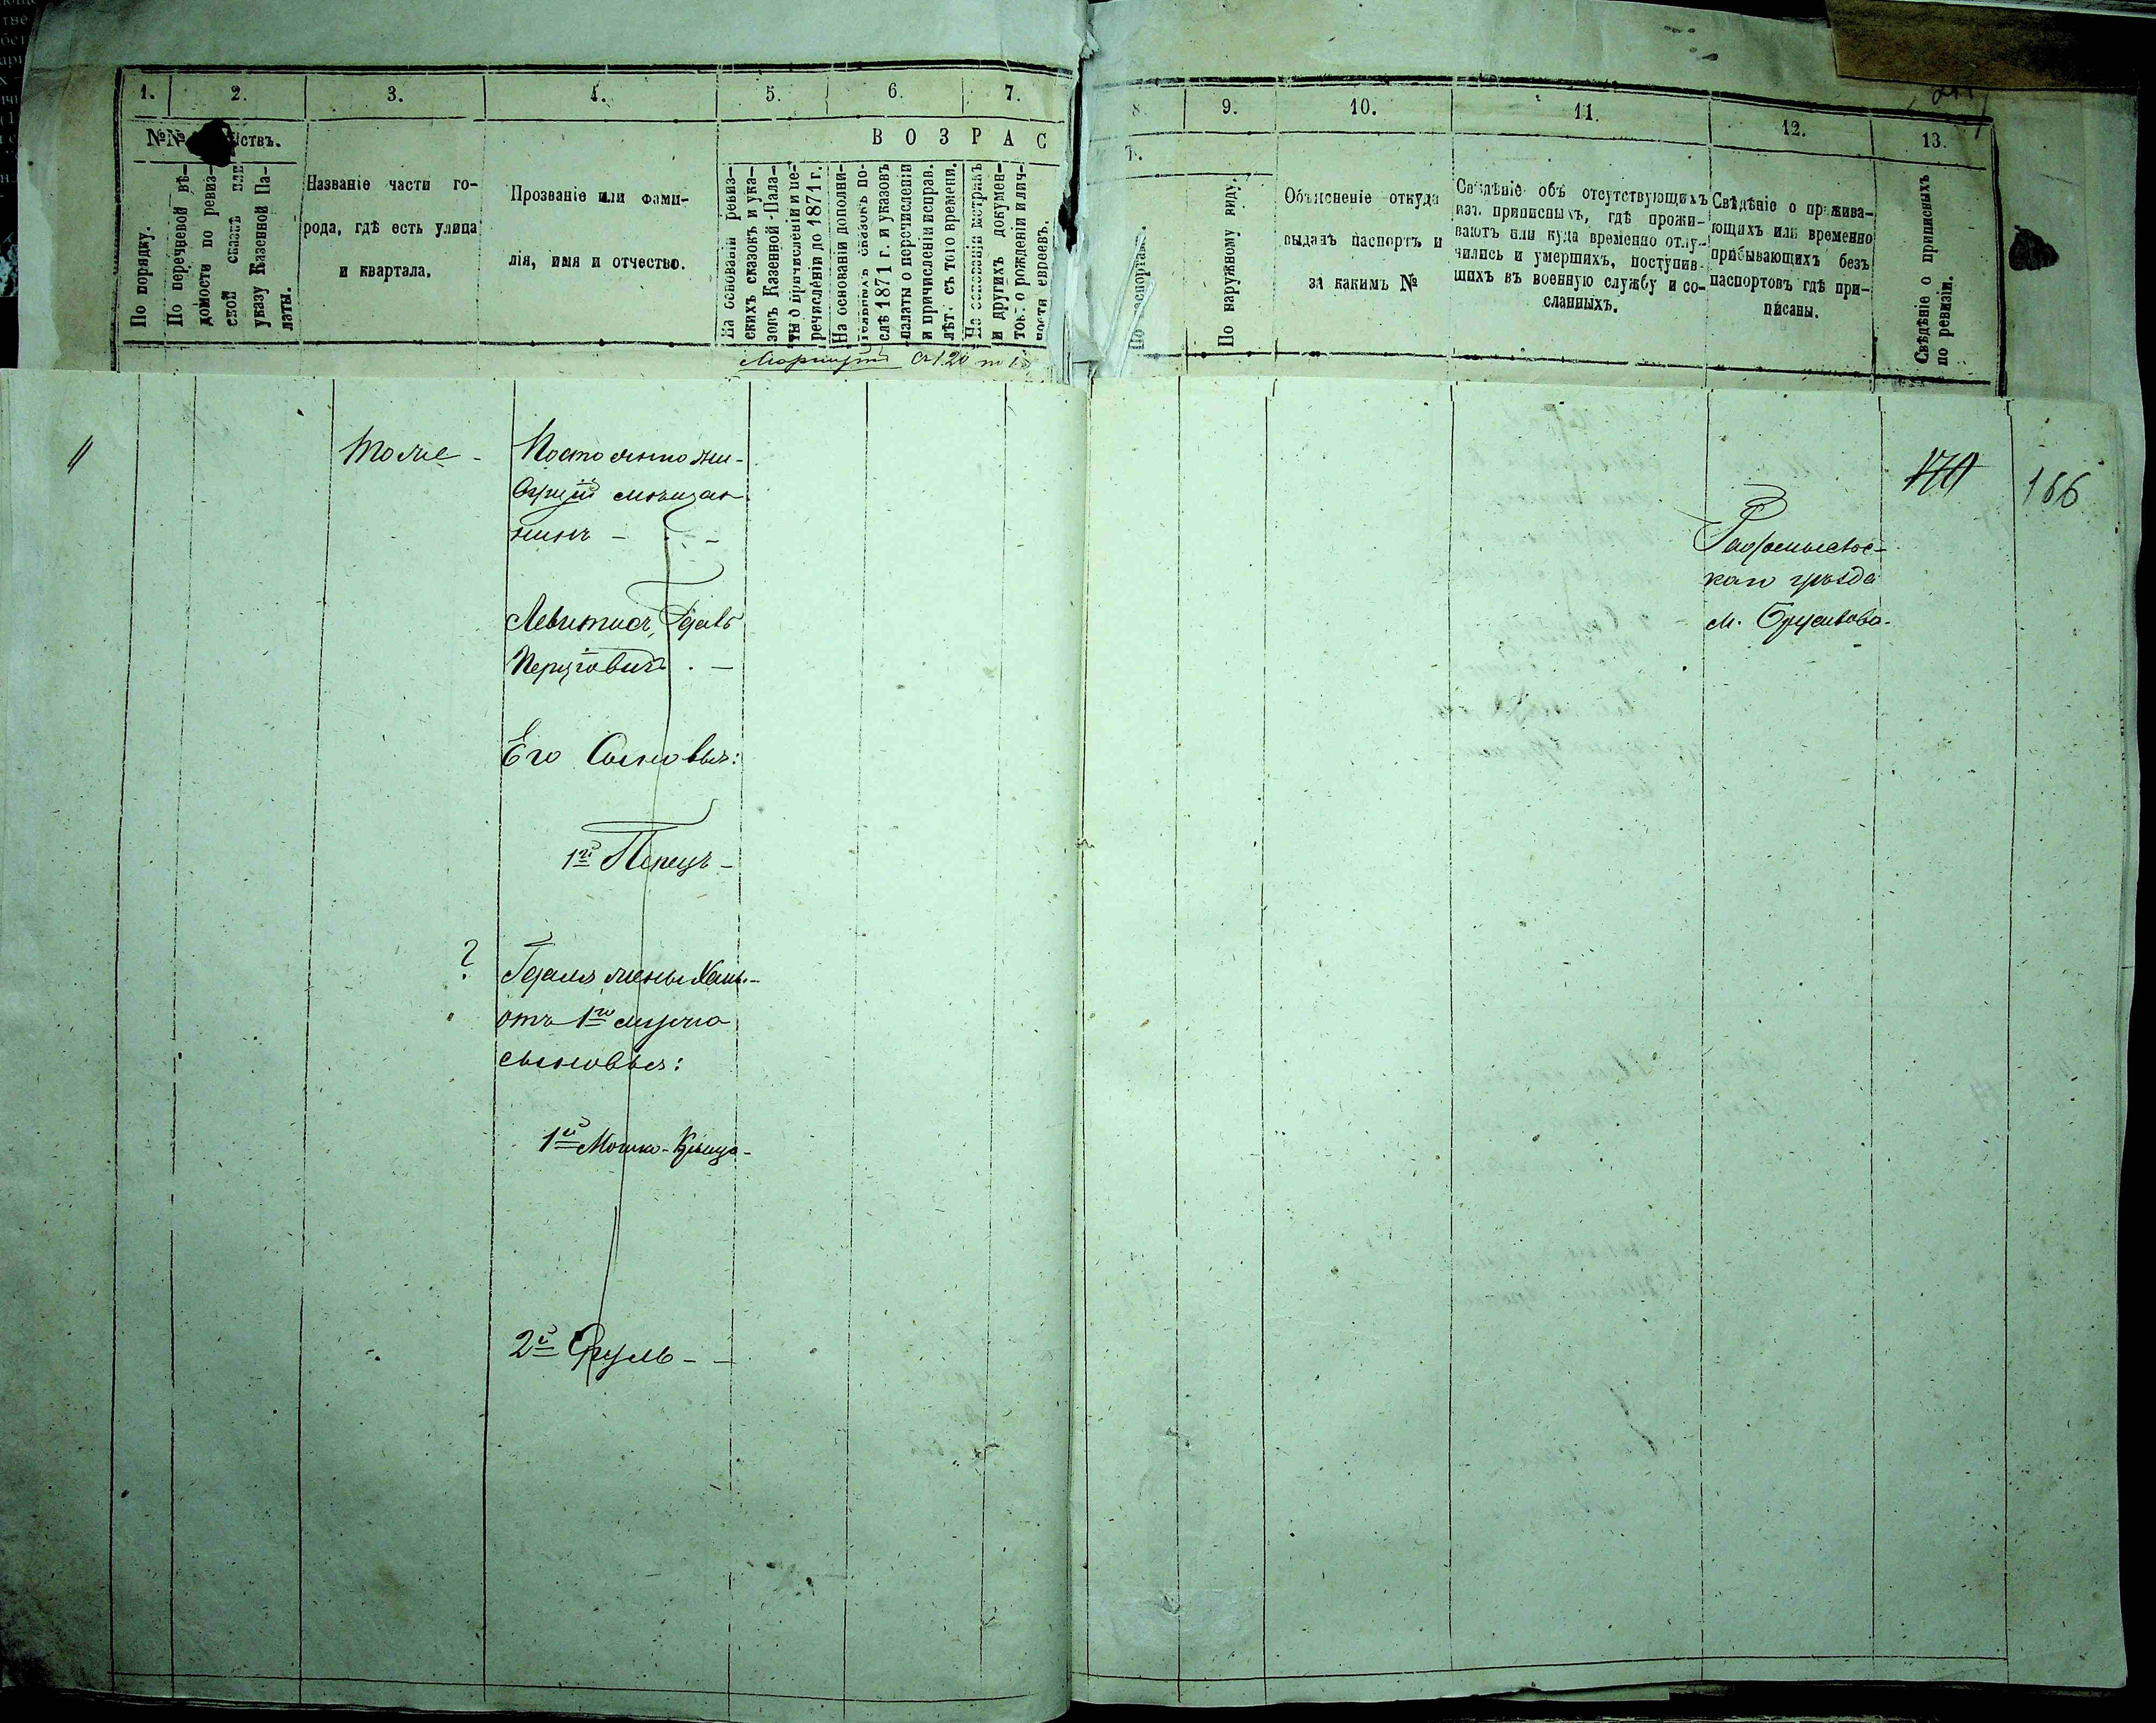 1. 2. 3. 4. 5. 6. 7. 8. 9. 10. 11. 12. 13.
№№ ствъ.
В О З Р А С Т.
По порядку.
По поречневой вѣ-
домости по ревиз-
ской сказкѣ или
указу Казенной Па-
латы.
Названіе части го-
рода, гдѣ есть улица
и квартала.
Прозваніе или фами-
лія, имя и отчество.
На основаніи ревиз-
скихъ сказокъ и ука-
зовъ Казенной Пала-
ты о причисленіи и пе-
речисленіи до 1871 г.
На основаніи дополни-
тельныхъ сказокъ по-
слѣ 1871 г. и указовъ
палаты о перечисленіи
и причисленіи исправ.
лѣт. съ того времени.
На основаніи метрикъ
и другихъ докумен-
тов. о рожденіи и лич-
ности евреевъ.
По паспортамъ.
По наружному виду.
Объясненіе откуда
выданъ паспортъ и
за какимъ №
Свѣдѣніе объ отсутствующихъ
изъ приписныхъ, гдѣ прожи-
ваютъ или куда временно отлу-
чились и умершихъ, поступив-
шихъ въ военную службу и со-
сланныхъ.
Свѣдѣніе о прожива-
ющихъ или временно
прибывающихъ безъ
паспортовъ гдѣ при-
писаны.
Свѣдѣніе о приписныхъ
по ревизіи.
Тоже -
Постоянно жи-
вущій мѣщан-
нинъ -
Левитисъ, Гдаль
Перцовичъ. -
Его Сыновья:
1й Перецъ -
? Гдаля жены Ханы -
отъ 1го мужа
сыновья:
1й Мошко-
2й Сруль - -
Радомысльс-
каго уѣзда
м. Брусилова.
170
166